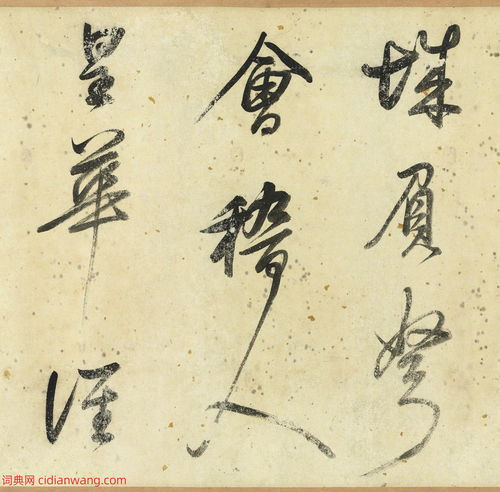 城負弩
會稽人
星華往
词典网 cidianwang.com